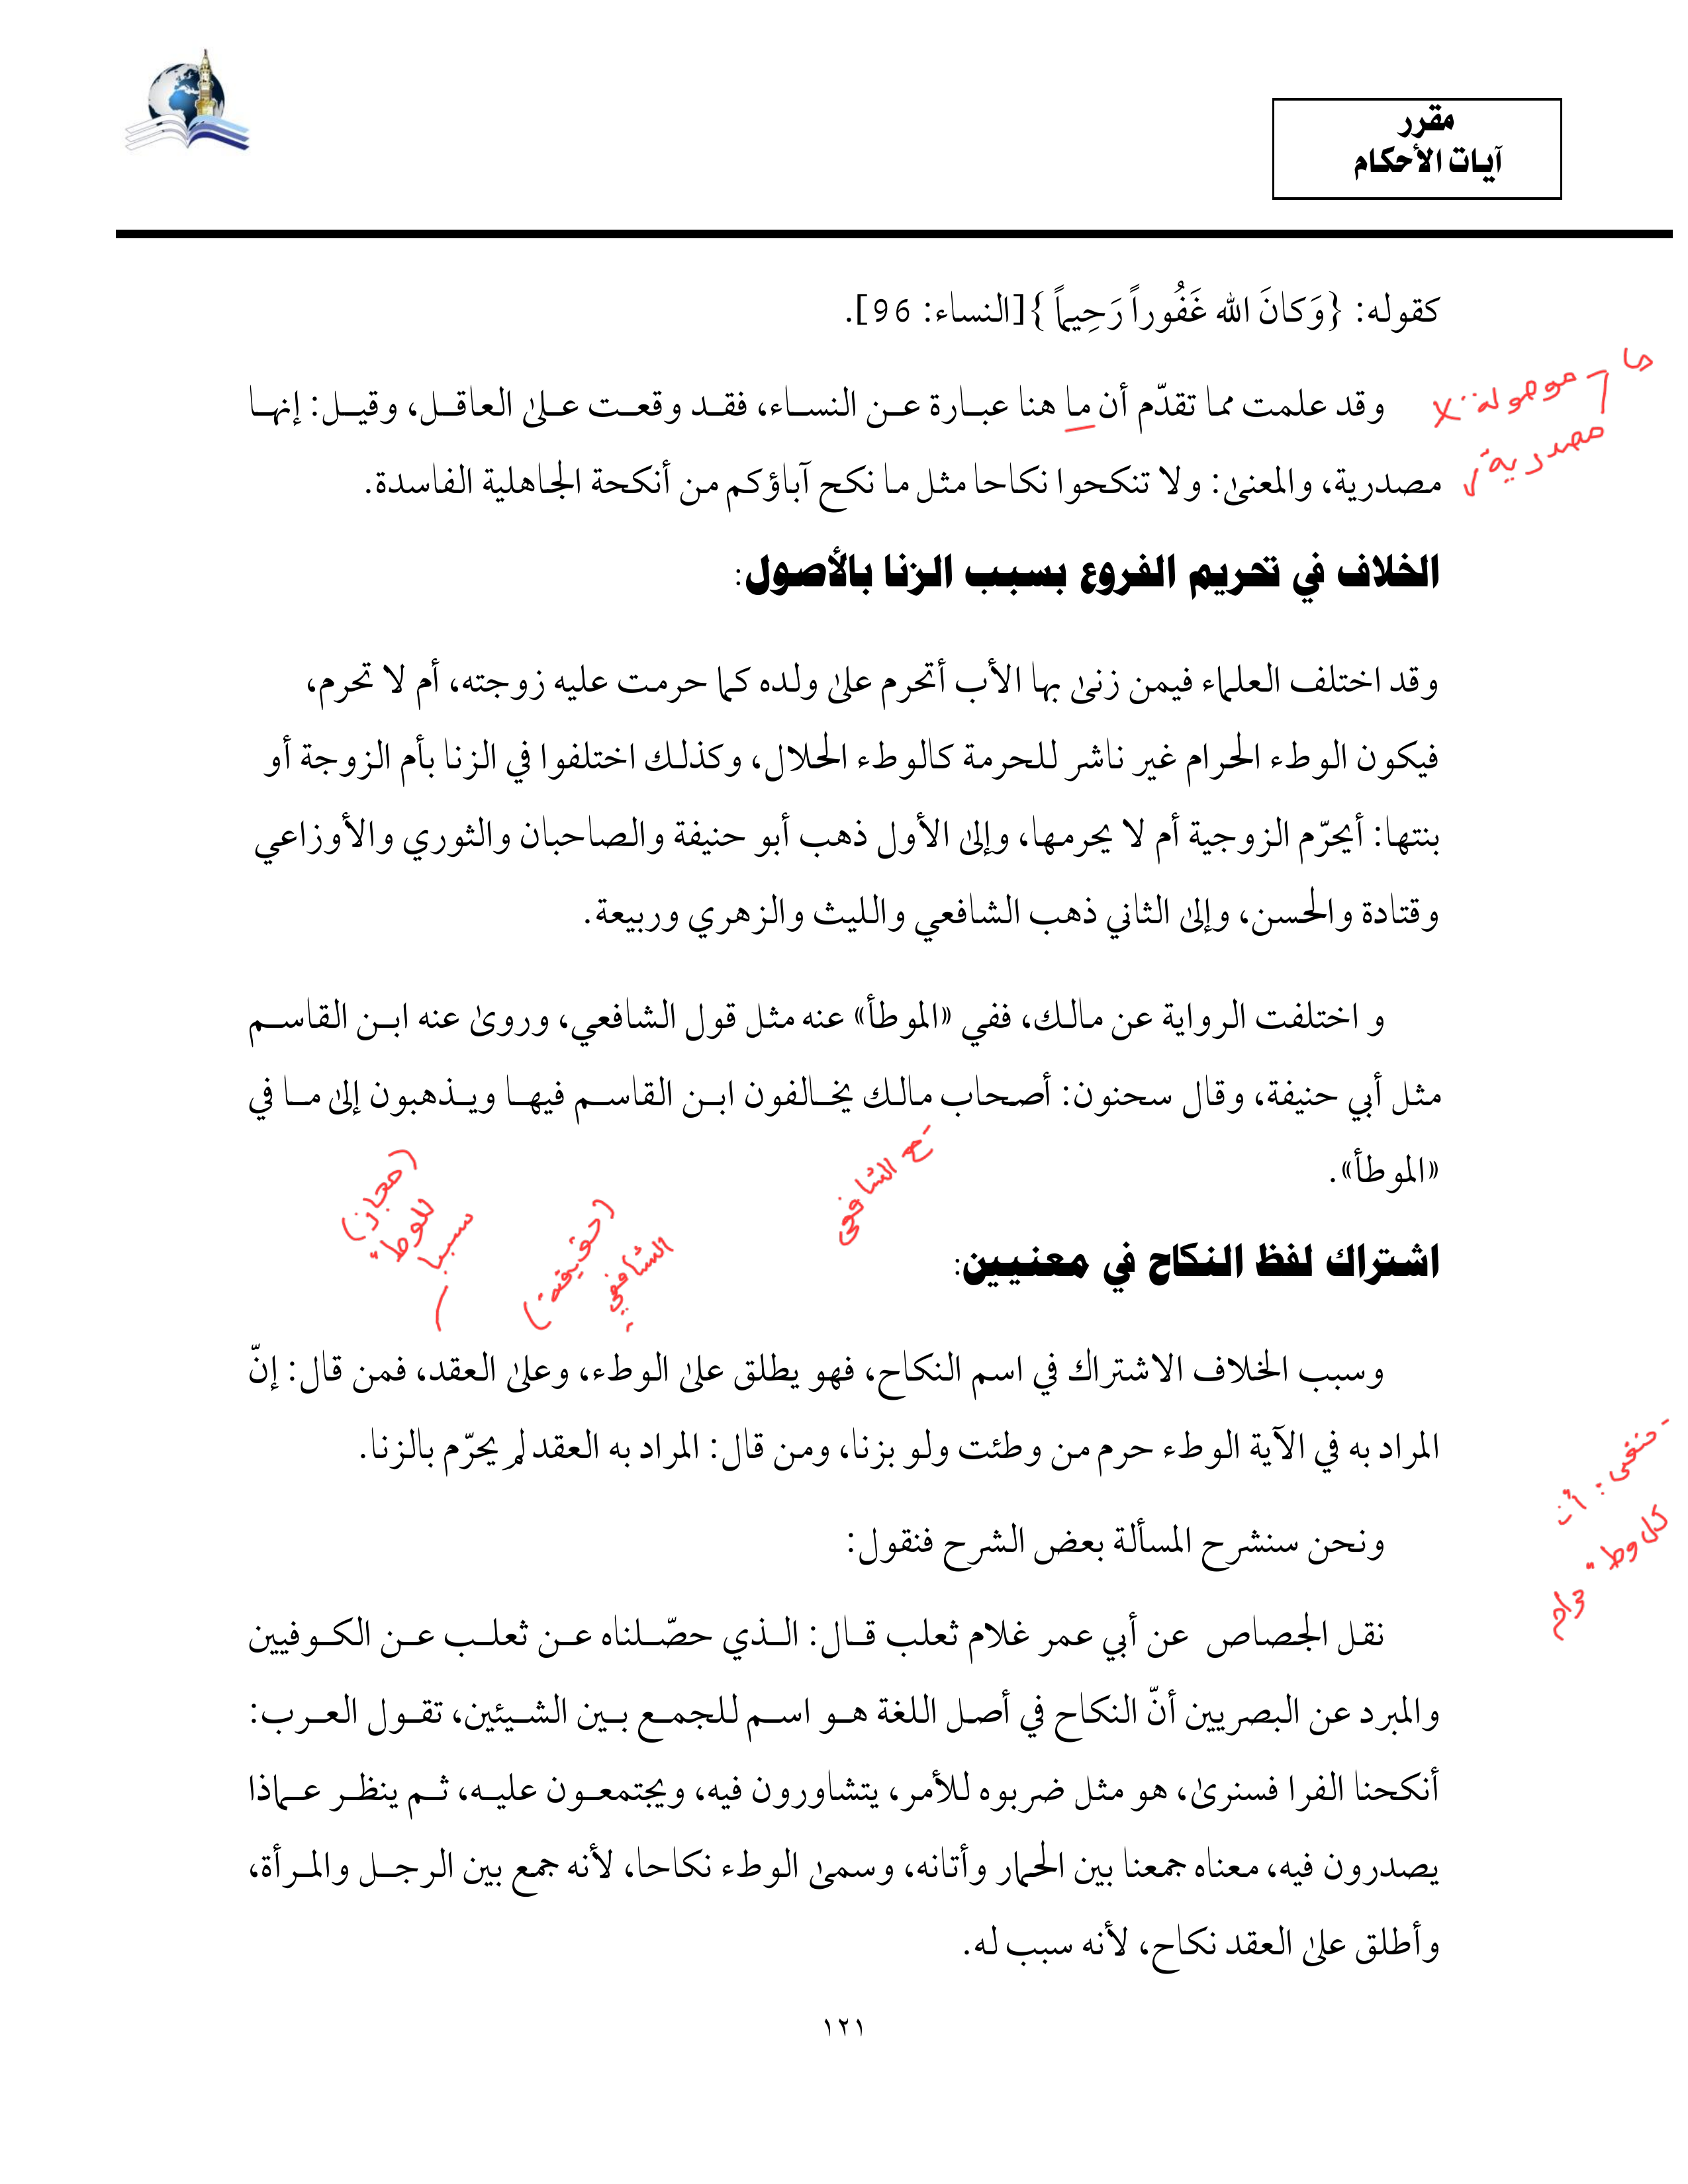 مقرر
آيات الأحكام
كقوله: {وَكانَ الله غَفُوراً رَحِيماً }[النساء: 96].
ما - موصولة X
مصدرية ✓
وقد علمت مما تقدّم أن ما هنا عبارة عن النساء، فقد وقعت علىٰ العاقل، وقيل: إنها
مصدرية، والمعنىٰ: ولا تنكحوا نكاحا مثل ما نكح آباؤكم من أنكحة الجاهلية الفاسدة.
الخلاف في تحريم الفروع بسبب الزنا بالأصول:
وقد اختلف العلماء فيمن زنىٰ بها الأب أتحرم علىٰ ولده كما حرمت عليه زوجته، أم لا تحرم،
فيكون الوطء الحرام غير ناشر للحرمة كالوطء الحلال، وكذلك اختلفوا في الزنا بأم الزوجة أو
بنتها: أيحرّم الزوجية أم لا يحرمها، وإلىٰ الأول ذهب أبو حنيفة والصاحبان والثوري والأوزاعي
وقتادة والحسن، وإلىٰ الثاني ذهب الشافعي والليث والزهري وربيعة.
و اختلفت الرواية عن مالك، ففي «الموطأ» عنه مثل قول الشافعي، وروىٰ عنه ابن القاسم
مثل أبي حنيفة، وقال سحنون: أصحاب مالك يخالفون ابن القاسم فيها ويذهبون إلىٰ ما في
«الموطأ».
الشافعى
(حقيقة)
الشافعي
(مجاز)
للوطء
سببا
اشتراك لفظ النكاح في معنيين:
وسبب الخلاف الاشتراك في اسم النكاح، فهو يطلق علىٰ الوطء، وعلىٰ العقد، فمن قال: إنّ
المراد به في الآية الوطء حرم من وطئت ولو بزنا، ومن قال: المراد به العقد لم يحرّم بالزنا.
: أن
كل وطء حرام
ونحن سنشرح المسألة بعض الشرح فنقول:
نقل الجصاص عن أبي عمر غلام ثعلب قال: الذي حصّلناه عن ثعلب عن الكوفيين
والمبرد عن البصريين أنّ النكاح في أصل اللغة هو اسم للجمع بين الشيئين، تقول العرب:
أنكحنا الفرا فسنرىٰ، هو مثل ضربوه للأمر، يتشاورون فيه، ويجتمعون عليه، ثم ينظر عماذا
يصدرون فيه، معناه جمعنا بين الحمار وأتانه، وسمىٰ الوطء نكاحا، لأنه جمع بين الرجل والمرأة،
وأطلق علىٰ العقد نكاح، لأنه سبب له.
١٢١